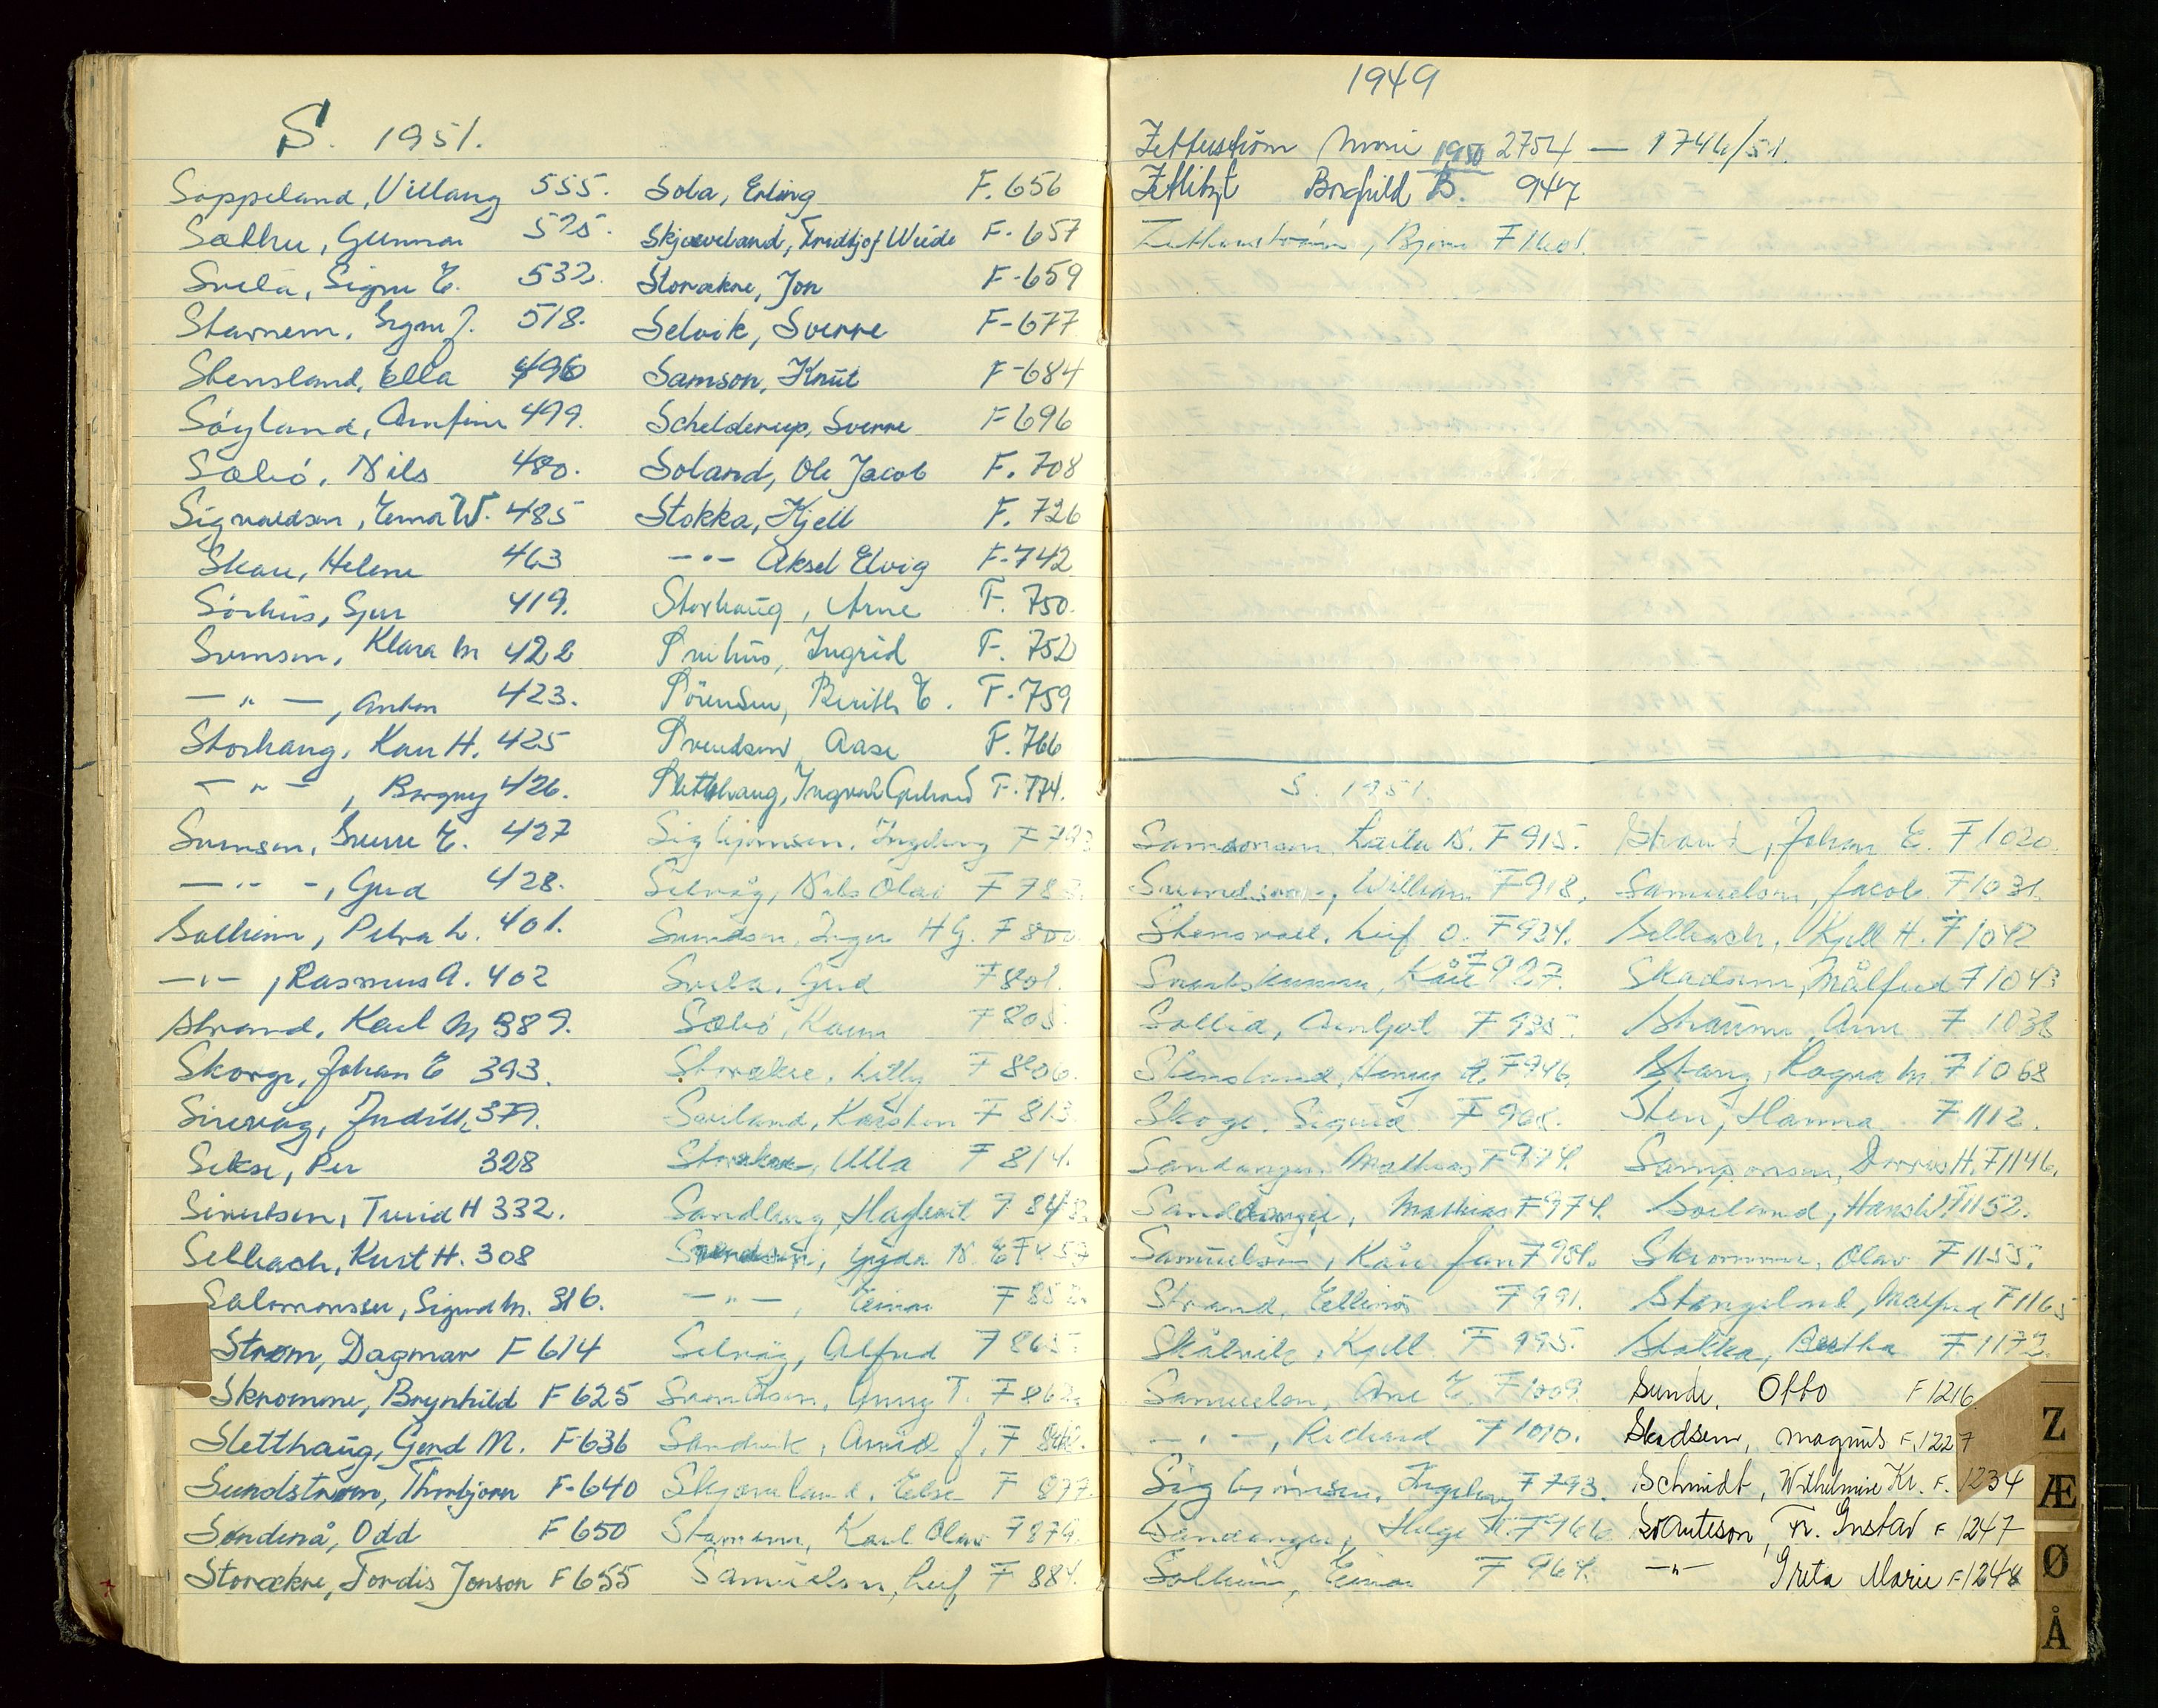 S. 1951.
Soppeland, Villang 555.
Sæthre, Gunnar 575.
Svela, Signe E. 532.
Stavnem, Signe J. 518.
Stensland, Ella 496
Søyland, Arnfinn 499.
Sæbø, Nils 480.
Sigvaldsen, Erna W. 485
Skau, Helene 463
Sørhus, Sjur 419.
Svensen, Klara M 422
— " —, Anton 423.
Storhaug, Kari H. 425
— " —, Borgny 426.
Svensen, Sverre E. 427
— " —, Gerd 428.
Solheim, Petra L. 401.
— " —, Rasmus A. 402
Strand, Karl M 389.
Skorge, Johan E 393.
Sirevåg, Judith, 379.
Sekse, Per 328
Sivertsen, Turid H 332.
Selleach, Kurt H. 308
Salomonsen, Sigurd M. 316.
Strøm, Dagmar F 614
Skromme, Brynhild F 625
Sletthaug, Gerd M. F-636
Sundstrøm, Thorbjørn F-640
Søndenå, Odd F 650
Storækre, Tordis Jonson F 655
Sola, Erling F. 656
Skjæveland, Fridtjof Weide F. 657
Storækre, Jon F-659
Selvik, Sverre F-677
Samson, Knut F-684
Schelderup, Sverre F 696
Soland, Ole Jacob F. 708
Stokka, Kjell F. 726
— " — Aksel Elvig F-742
Storhaug, Arne F. 750.
Ingrid F. 752
Sörensen, Berith E. F. 759
Svendsen, Aase F. 766
Sletthaug, Ingvald Gerhard F. 774.
Sigbjørnsen, Ingeborg F 793
Selvåg, Nils Olav F 78
Svendsen, Inger H G. F 800
Svela, Gerd F 801.
Sæbø, Karen F 805.
Storækre, Lilly F 806.
Sviland, Karsten F 813
Storækre, Ulla F 814.
Sandberg, Hagbart F 848.
Svendsen, Gyda N. E F 853
— " —, Einar F 852.
Selvåg, Alfred F 865.
Svendsen, Anny T. F 862.
Sandvik, Arvid J. F
Skjæveland, Else F 877
Stavnem, Karl Olav F 874.
Samuelsen, Leif F 884.
1949
Zetterström Marie 1950 2754 — 1746/51.
Zetlitz Borghild B. 947
Zetterström, Bjørn F 1601.
S. 1951.
Samsonsen, Laila N. F 915.
Svendsen, William F 918.
Stensvall, Leif O. F 924.
Kåre F 927.
Sollid, Arnljot F 935.
Stensland, Henny A. F 946.
Skoge, Sigurd F 968.
Sandanger, Mathias F 974.
Sandanger, Mathias F 974.
Samuelsen, Kåre Jan F 981.
Strand, Ellinor F 991.
Skålvik, Kjell F 995.
Samuelsen, Arne E. F 1009.
— " —, Richard F 1010.
Sigbjørnsen, Ingeborg F 793.
Sandanger, Helge N. F 966
Solheim, Einar F 964.
Strand, Johan E. F 1020.
Samuelsen, Jacob F 1031.
Selleach, Kjell H. F 1042
Skadsem, Målfrid F 1043
Straume, Arne F 1038
Stang, Ragna M. F 1068
Sten, Hanna F 1112.
Sampsonsen, Dorris H. F 1146.
Sørland, Hans W. F 1152.
Skromme, Olav F 1155.
Stangeland, Målfrid F 1165
Stokka, Bertha F 1172.
Sunde, Otto F 1216
Skadsem, Magnus F. 1227
Schmidt, Wilhelmine Kr. F. 1234
Svanteson, Fr. Gustav F 1247
— " — Greta Marie F 1248
Z
Æ
Ø
Å